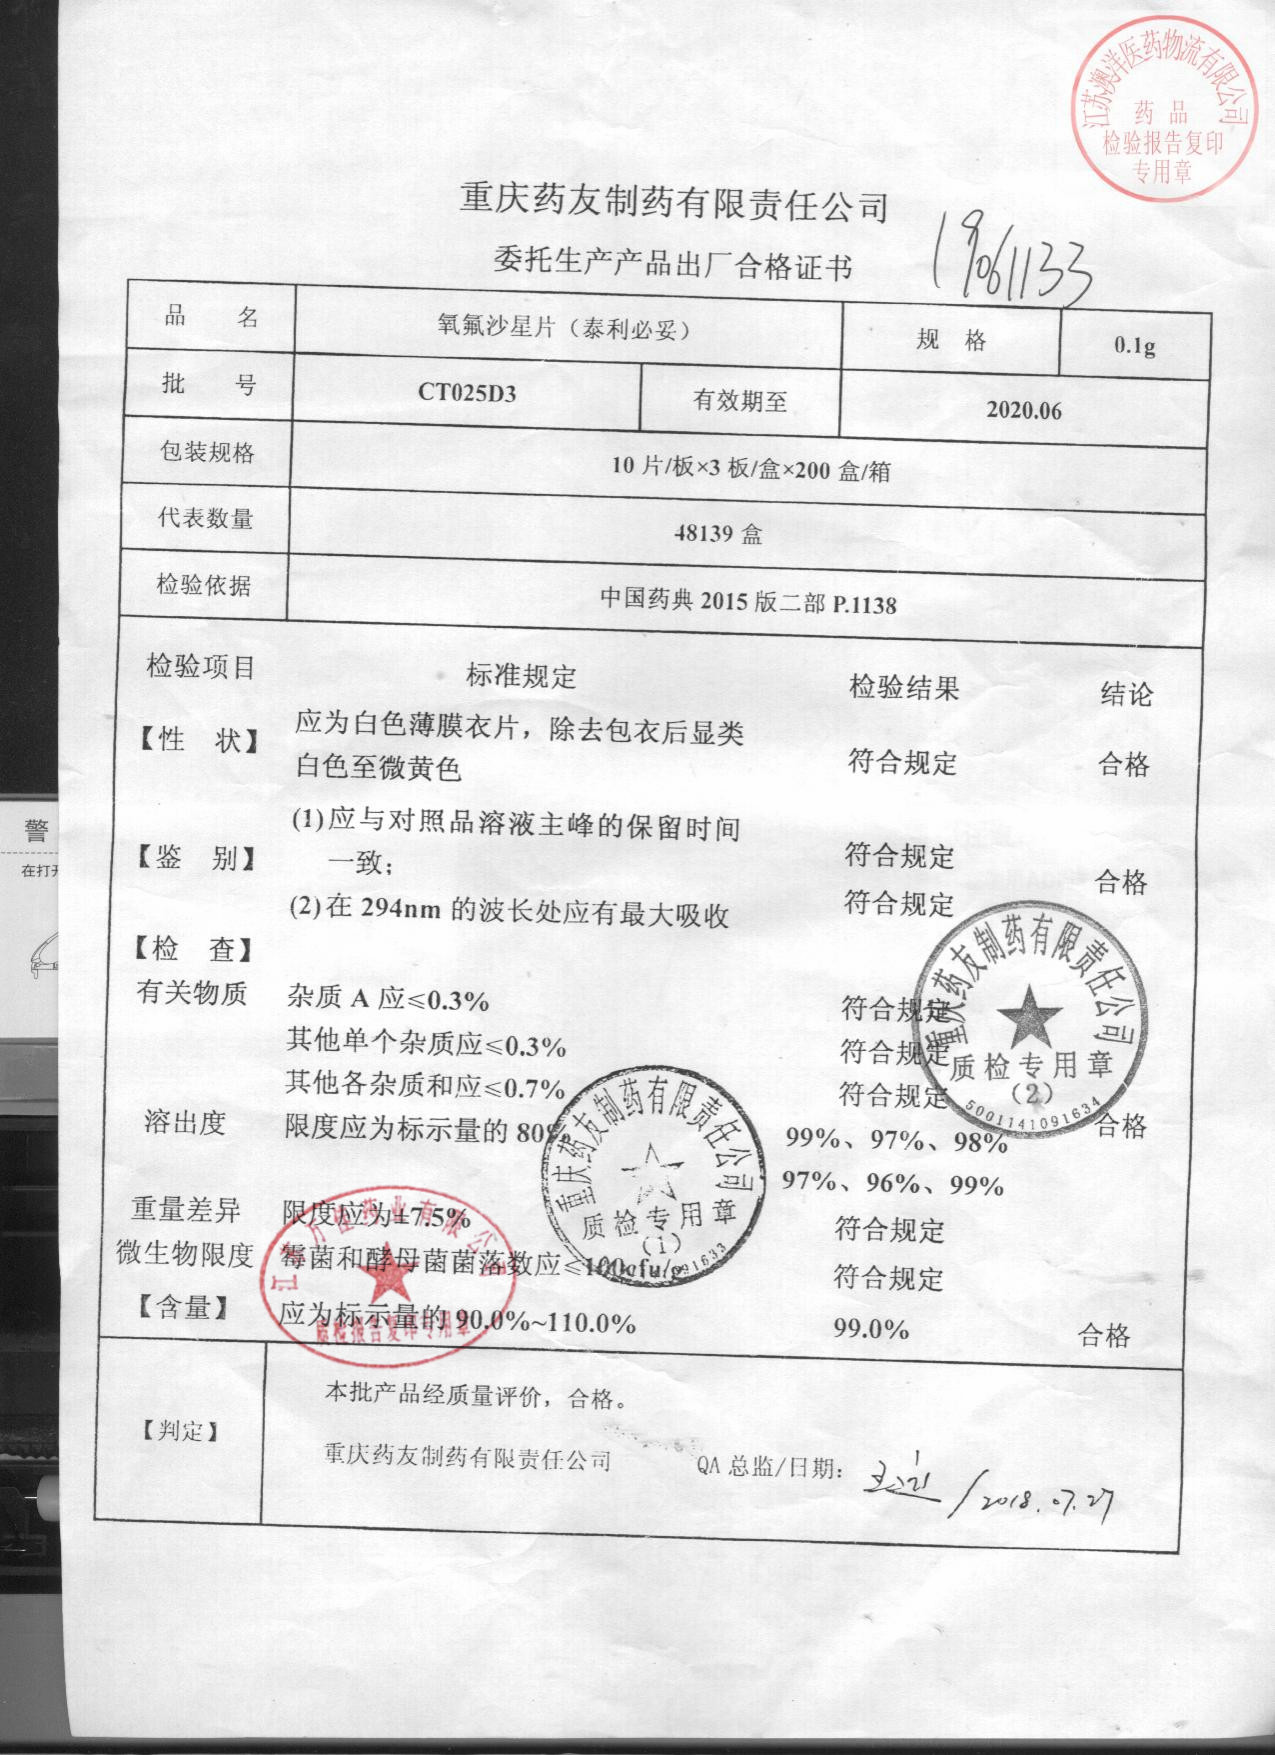 江苏澳洋医药物流有限公司
药 品
检验报告复印
专用章
重庆药友制药有限责任公司
委托生产产品出厂合格证书
19061133
品 名 氧氟沙星片（泰利必妥） 规 格 0.1g
批 号 CT025D3 有效期至 2020.06
包装规格 10 片/板×3 板/盒×200 盒/箱
代表数量 48139 盒
检验依据 中国药典 2015 版二部 P.1138
检验项目 标准规定 检验结果 结论
【性 状】 应为白色薄膜衣片，除去包衣后显类
白色至微黄色 符合规定 合格
(1)应与对照品溶液主峰的保留时间
【鉴 别】 一致； 符合规定 合格
(2)在 294nm 的波长处应有最大吸收 符合规定
【检 查】
有关物质 杂质 A 应≤0.3% 符合规定
其他单个杂质应≤0.3% 符合规定
其他各杂质和应≤0.7% 符合规定
溶出度 限度应为标示量的 80% 99%、97%、98% 合格
97%、96%、99%
重量差异 限度应为±7.5% 符合规定
微生物限度 霉菌和酵母菌菌落数应≤100cfu/g 符合规定
【含量】 应为标示量的 90.0%~110.0% 99.0% 合格
重庆药友制药有限责任公司
质检专用章
（2）
5001141091634
重庆药友制药有限责任公司
质检专用章
（1）
91633
万
药业有限公司
质检报告复印专用章
【判定】 本批产品经质量评价，合格。
重庆药友制药有限责任公司 QA 总监/日期： /2018.07.27
警
在打开